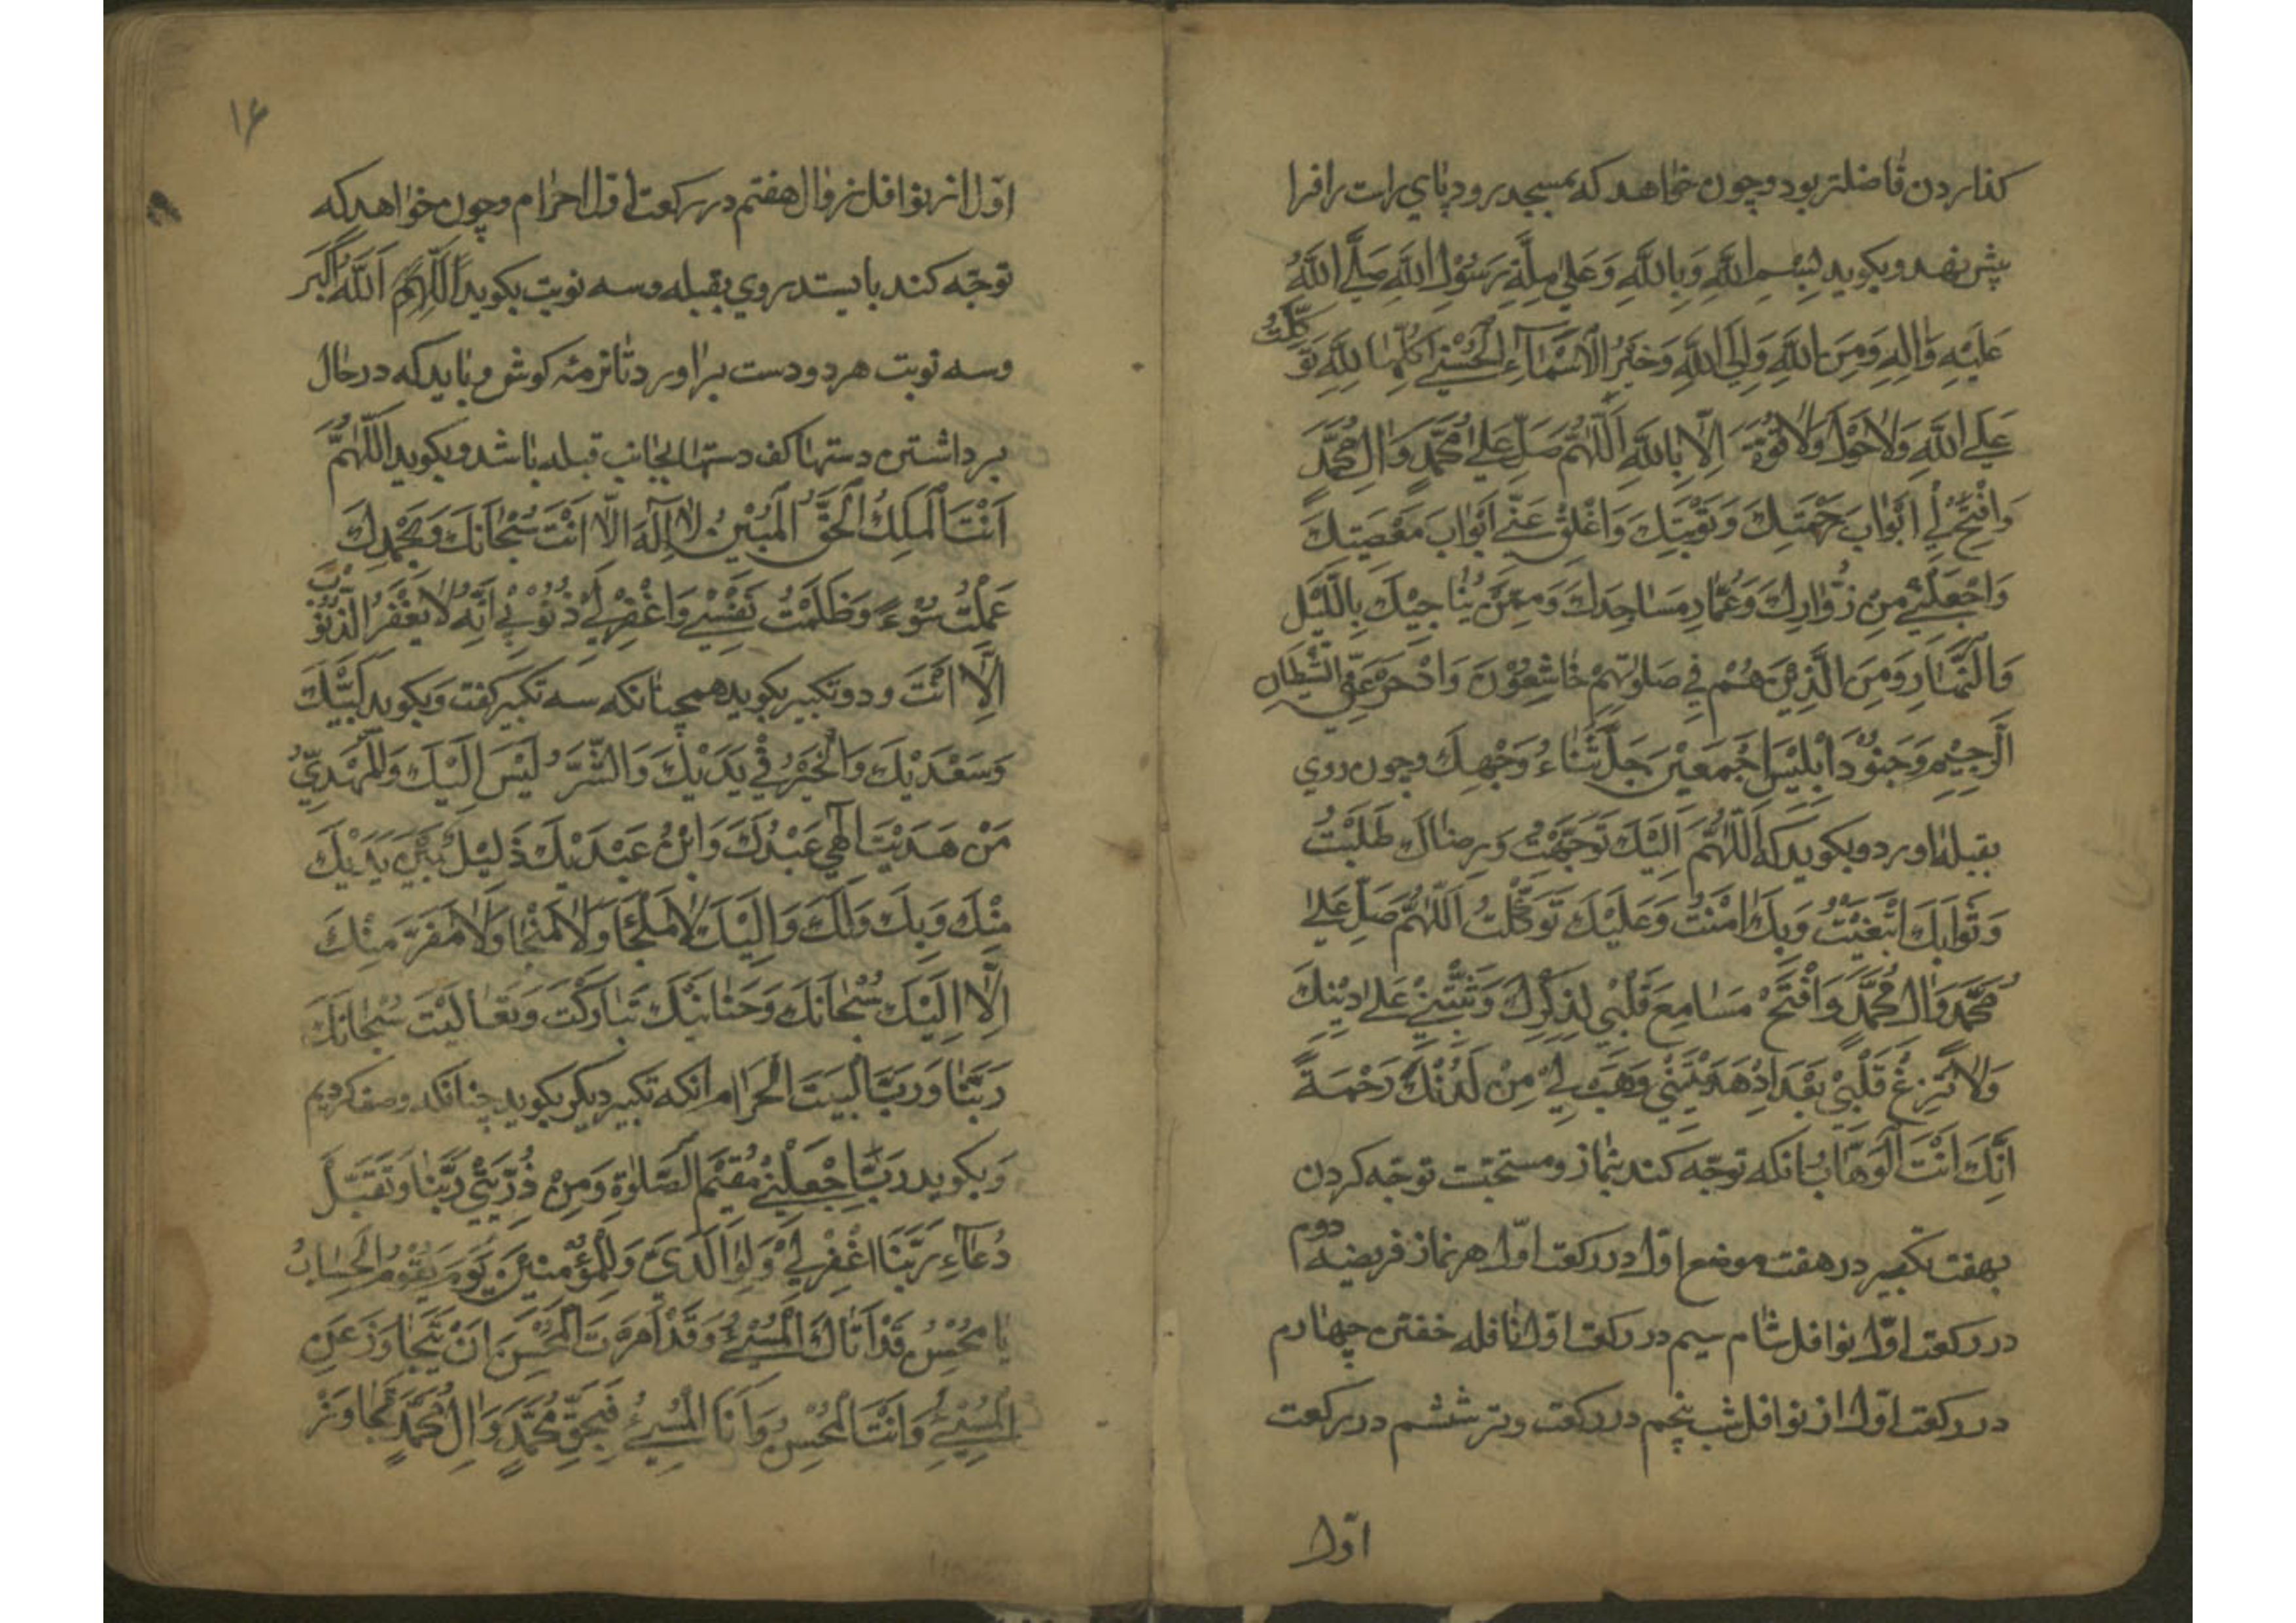 كذاردن فاضلتر بود و چون خواهد كه بمسجد رود پاي راست را فرا
پيش نهد و بكويد بِسْمِ اللَّهِ وَبِاللَّهِ وَعَلىٰ مِلَّةِ رَسُوْلِ اللَّهِ صَلَّى اللَّهُ
عَلَيْهِ وَاٰلِهِ وَمِنَ اللَّهِ وَاِلَى اللَّهِ وَخَيْرُ الْاَسْمَآءِ الْحُسْنىٰ كُلُّهٰا لِلَّهِ تَوَكَّلْتُ
عَلَى اللَّهِ وَلٰا حَوْلَ وَلٰا قُوَّةَ اِلّٰا بِاللَّهِ اَللّٰهُمَّ صَلِّ عَلىٰ مُحَمَّدٍ وَاٰلِ مُحَمَّدٍ
وَافْتَحْ لِيْ اَبْوٰابَ رَحْمَتِكَ وَتَوْبَتِكَ وَاَغْلِقْ عَنّيْ اَبْوٰابَ مَعْصِيَتِكَ
وَاجْعَلْنِيْ مِنْ زُوّٰارِكَ وَعُمّٰارِ مَسٰاجِدِكَ وَمِمَّنْ يُنٰاجِيْكَ بِاللَّيْلِ
وَالنَّهٰارِ وَمِنَ الَّذِيْنَ هُمْ فِي صَلٰوتِهِمْ خٰاشِعُوْنَ وَادْحَرْ عَنِّي الشَّيْطٰانَ
الرَّجِيْمَ وَجُنُوْدَ اِبْلِيْسَ اَجْمَعِيْنَ جَلَّ ثَنٰاءُ وَجْهِكَ و چون روي
بقبله اورد و بكويد كه اَللّٰهُمَّ اِلَيْكَ تَوَجَّهْتُ وَرِضٰاكَ طَلَبْتُ
وَثَوٰابَكَ ابْتَغَيْتُ وَبِكَ اٰمَنْتُ وَعَلَيْكَ تَوَكَّلْتُ اَللّٰهُمَّ صَلِّ عَلىٰ
مُحَمَّدٍ وَاٰلِ مُحَمَّدٍ وَافْتَحْ مَسٰامِعَ قَلْبِي لِذِكْرِكَ وَثَبِّتْنِيْ عَلىٰ دِيْنِكَ
وَلٰا تُزِغْ قَلْبِيْ بَعْدَ اِذْ هَدَيْتَنِيْ وَهَبْ لِيْ مِنْ لَدُنْكَ رَحْمَةً
اِنَّكَ اَنْتَ الْوَهّٰابُ انكه توجّه كند بنماز و مستحبّت توجّه كردن
بهفت تكبير در هفت موضع اوّل در ركعت اوّل هر نماز فريضه دوم
در ركعت اوّل نوافل شام سيم در ركعت اوّل نافله خفتن چهارم
در ركعت اوّل از نوافل شب پنجم در ركعت وتر ششم در ركعت
اوّل
۱۶
اوّل از نوافل زوال هفتم در ركعت اوّل احرام و چون خواهد كه
توجّه كند بايستد روي بقبله و سه نوبت بكويد اَللّٰهُمَّ اَللَّهُ اَكْبَر
و سه نوبت هر دو دست براورد تا نرمهٔ كوش و بايد كه در حال
برداشتن دستها كف دستها بجانب قبله باشد و بكويد اَللّٰهُمَّ
اَنْتَ الْمَلِكُ الْحَقُّ الْمُبِيْنُ لٰا اِلٰهَ اِلّٰا اَنْتَ سُبْحٰانَكَ وَبِحَمْدِكَ
عَمِلْتُ سُوْءً وَظَلَمْتُ نَفْسِيْ وَاغْفِرْ لِيْ ذُنُوْبِيْ اِنَّهُ لٰا يَغْفِرُ الذُّنُوْبَ
اِلّٰا اَنْتَ و دو تكبير بكويد همچنانكه سه تكبير كفت و بكويد لَبَّيْكَ
وَسَعْدَيْكَ وَالْخَيْرُ فِيْ يَدَيْكَ وَالشَّرُّ لَيْسَ اِلَيْكَ وَالْمَهْدِيُّ
مَنْ هَدَيْتَ اِلٰهِي عَبْدُكَ وَابْنُ عَبْدَيْكَ ذَلِيْلٌ بَيْنَ يَدَيْكَ
مِنْكَ وَبِكَ وَلَكَ وَاِلَيْكَ لٰا مَلْجَأَ وَلٰا مَنْجٰا وَلٰا مَفَرَّ مِنْكَ
اِلّٰا اِلَيْكَ سُبْحٰانَكَ وَحَنٰانَيْكَ تَبٰارَكْتَ وَتَعٰالَيْتَ سُبْحٰانَكَ
رَبَّنٰا وَرَبَّ الْبَيْتِ الْحَرٰامِ انكه تكبير ديكر بكويد چنانكه وصف كرديم
وَ بكويد رَبِّ اجْعَلْنِيْ مُقِيْمَ الصَّلٰوةِ وَمِنْ ذُرِّيَّتِيْ رَبَّنٰا وَتَقَبَّلْ
دُعٰاءِ رَبَّنَا اغْفِرْ لِيْ وَلِوٰالِدَيَّ وَلِلْمُؤْمِنِيْنَ يَوْمَ يَقُوْمُ الْحِسٰابُ
يٰا مُحْسِنُ قَدْ اَتٰاكَ الْمُسِيْءُ وَقَدْ اَمَرْتَ الْمُحْسِنَ اَنْ يَتَجٰاوَزَ عَنِ
الْمُسِيْءِ وَاَنْتَ الْمُحْسِنُ وَاَنَا الْمُسِيْءُ فَبِحَقِّ مُحَمَّدٍ وَاٰلِ مُحَمَّدٍ تَجٰاوَزْ